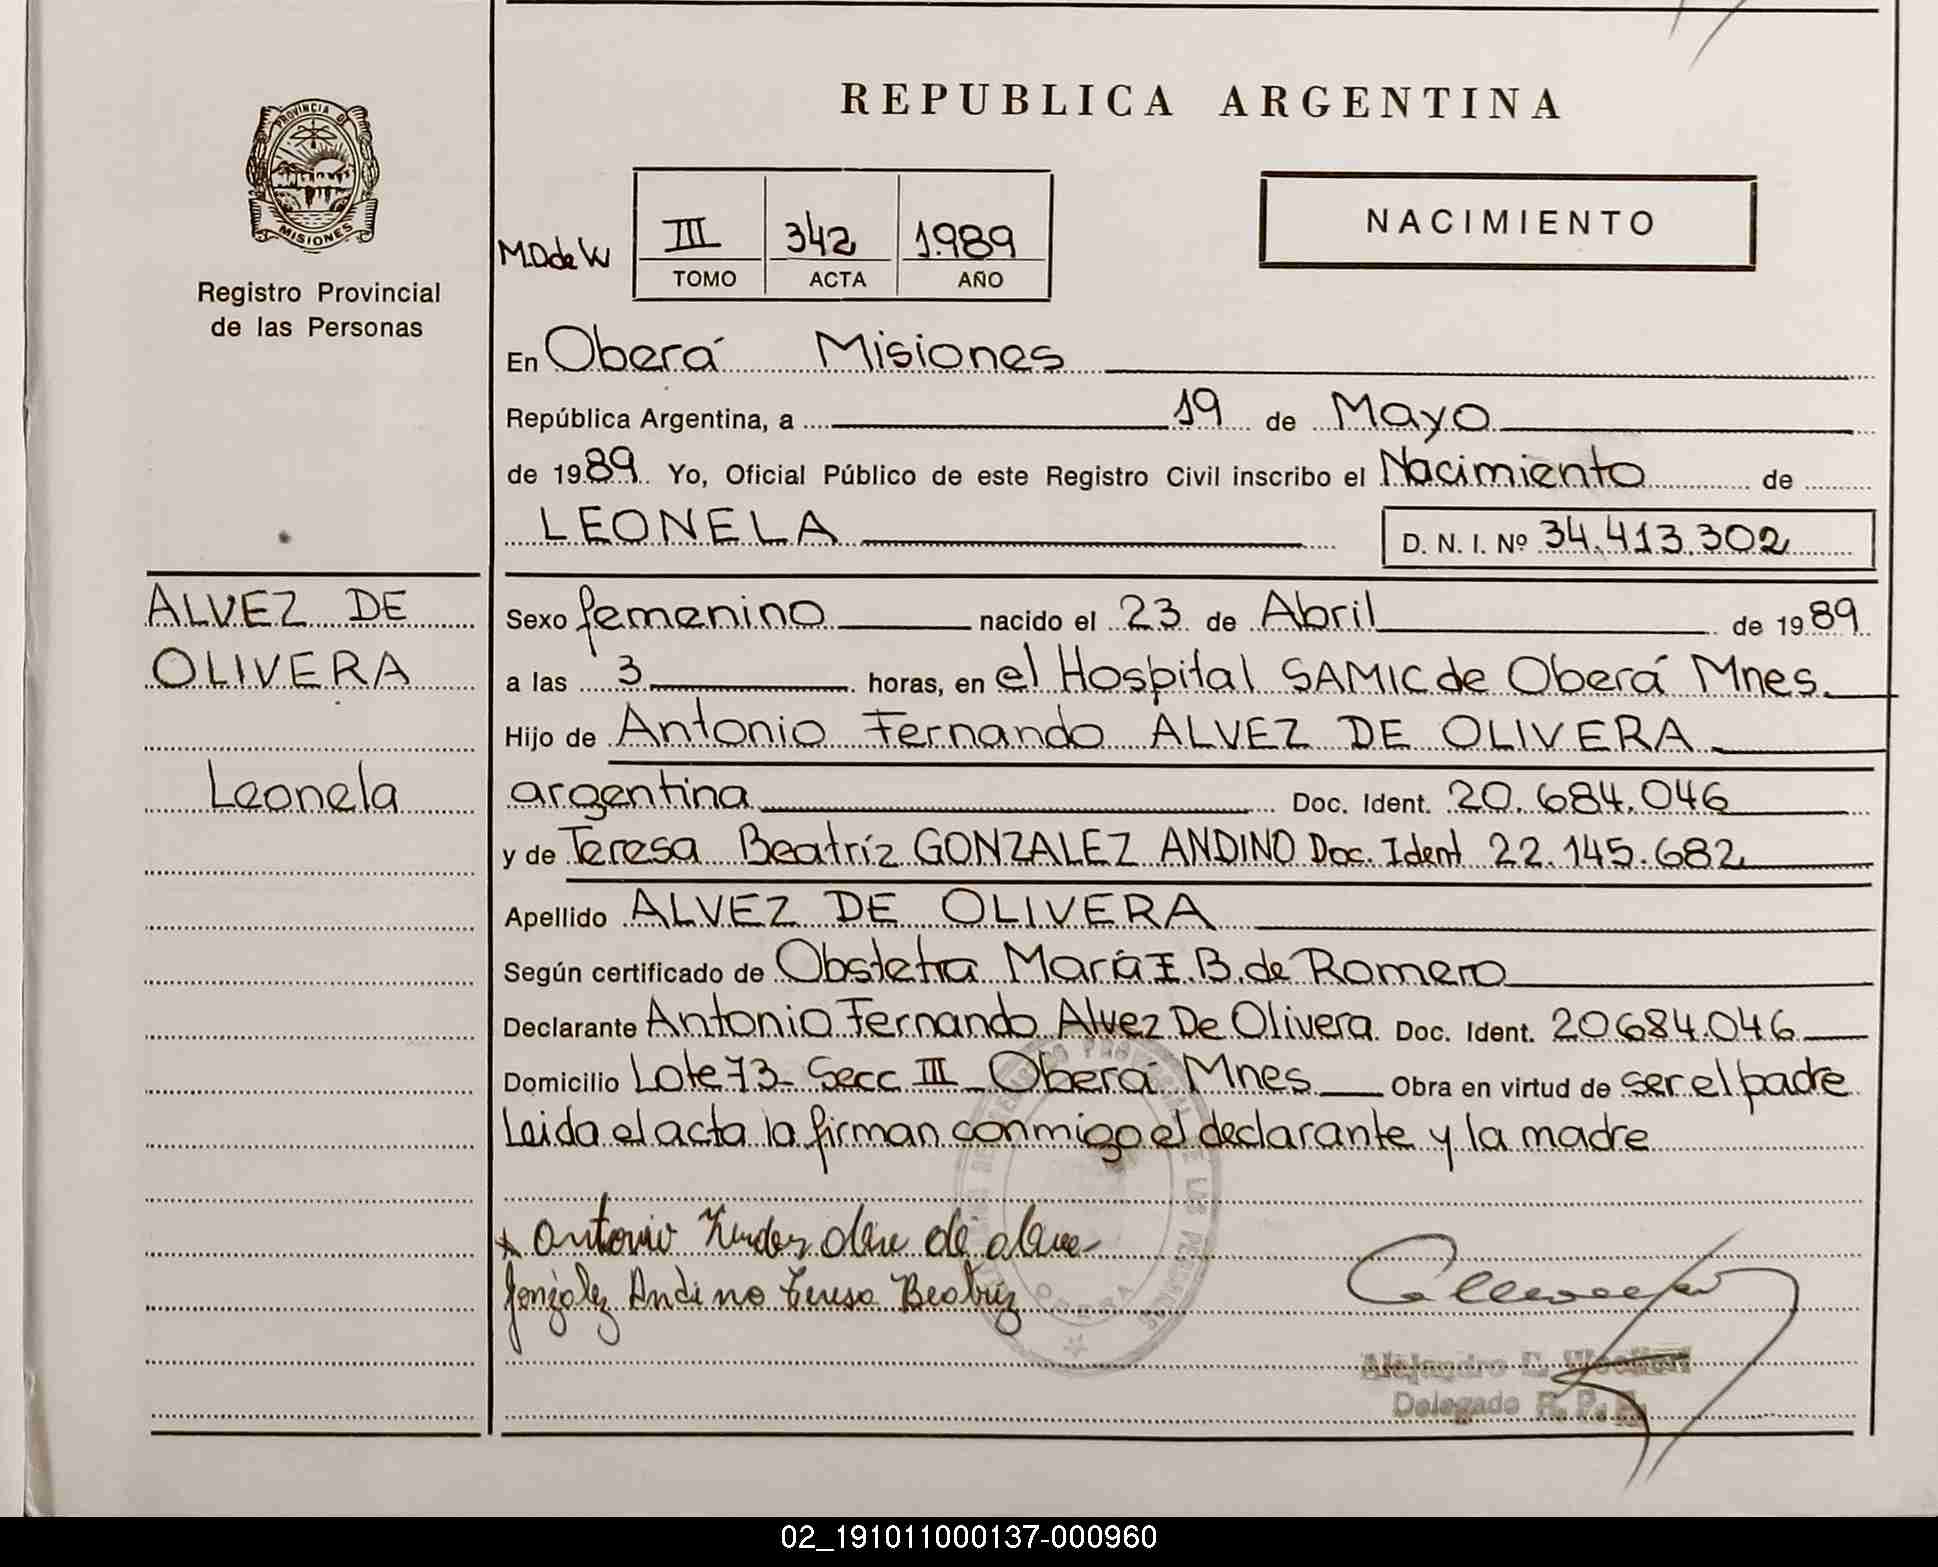 REPUBLICA ARGENTINA
PROVINCIA DE
MISIONES
Registro Provincial
de las Personas
M.D de W
III 342 1989
TOMO ACTA AÑO
NACIMIENTO
En Oberá Misiones
República Argentina, a 19 de Mayo
de 1989. Yo, Oficial Público de este Registro Civil inscribo el Nacimiento de
LEONELA D. N. I. Nº 34.413.302
ALVEZ DE
OLIVERA
Leonela
Sexo femenino nacido el 23 de Abril de 1989
a las 3 horas, en el Hospital SAMIC de Oberá Mnes.
Hijo de Antonio Fernando ALVEZ DE OLIVERA
argentina Doc. Ident. 20.684.046
y de Teresa Beatríz GONZALEZ ANDINO Doc. Ident 22.145.682
Apellido ALVEZ DE OLIVERA
Según certificado de Obstetra María I. B. de Romero
Declarante Antonio Fernando Alvez De Olivera Doc. Ident. 20684.046
Domicilio Lote 73 Secc III Oberá Mnes Obra en virtud de ser el padre
Leida el acta la firman conmigo el declarante y la madre
Antonio
Gonzalez Andino Teresa Beatriz
OBERA
Alejandro E.
Delegado R. P. P.
02_191011000137-000960